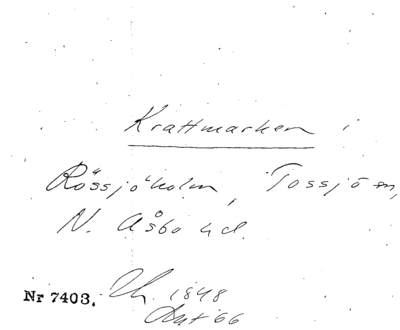 Krattmarken i
Rössjöholm, Tossjö sn,
N. Åsbo hd.
Nr 7403. 1848